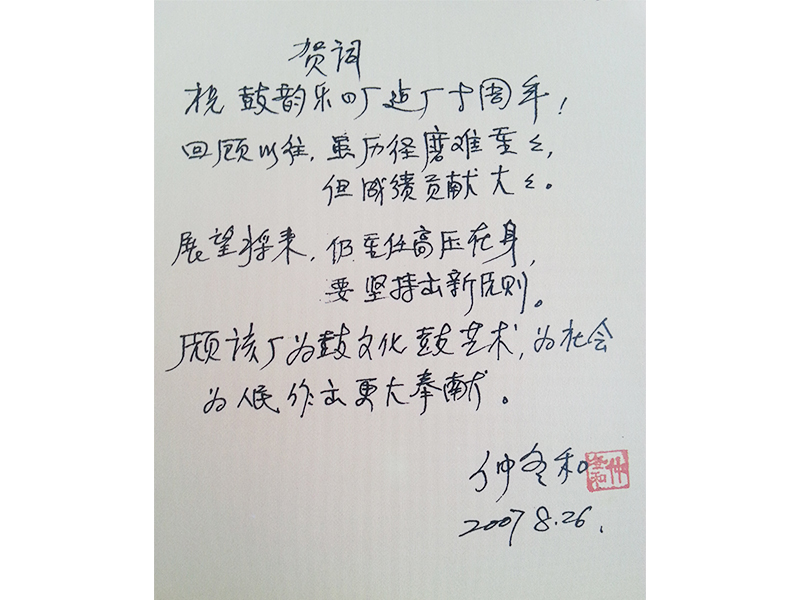 贺词
祝鼓韵乐四厂造厂十周年!
回顾以往,虽历经磨难重々,
但成绩贡献大々。
展望将来,仍重任高压在身,
要坚持出新原则。
愿该厂为鼓文化鼓艺术,为社会
为人民作出更大奉献。
仲冬和
2007 8.26.